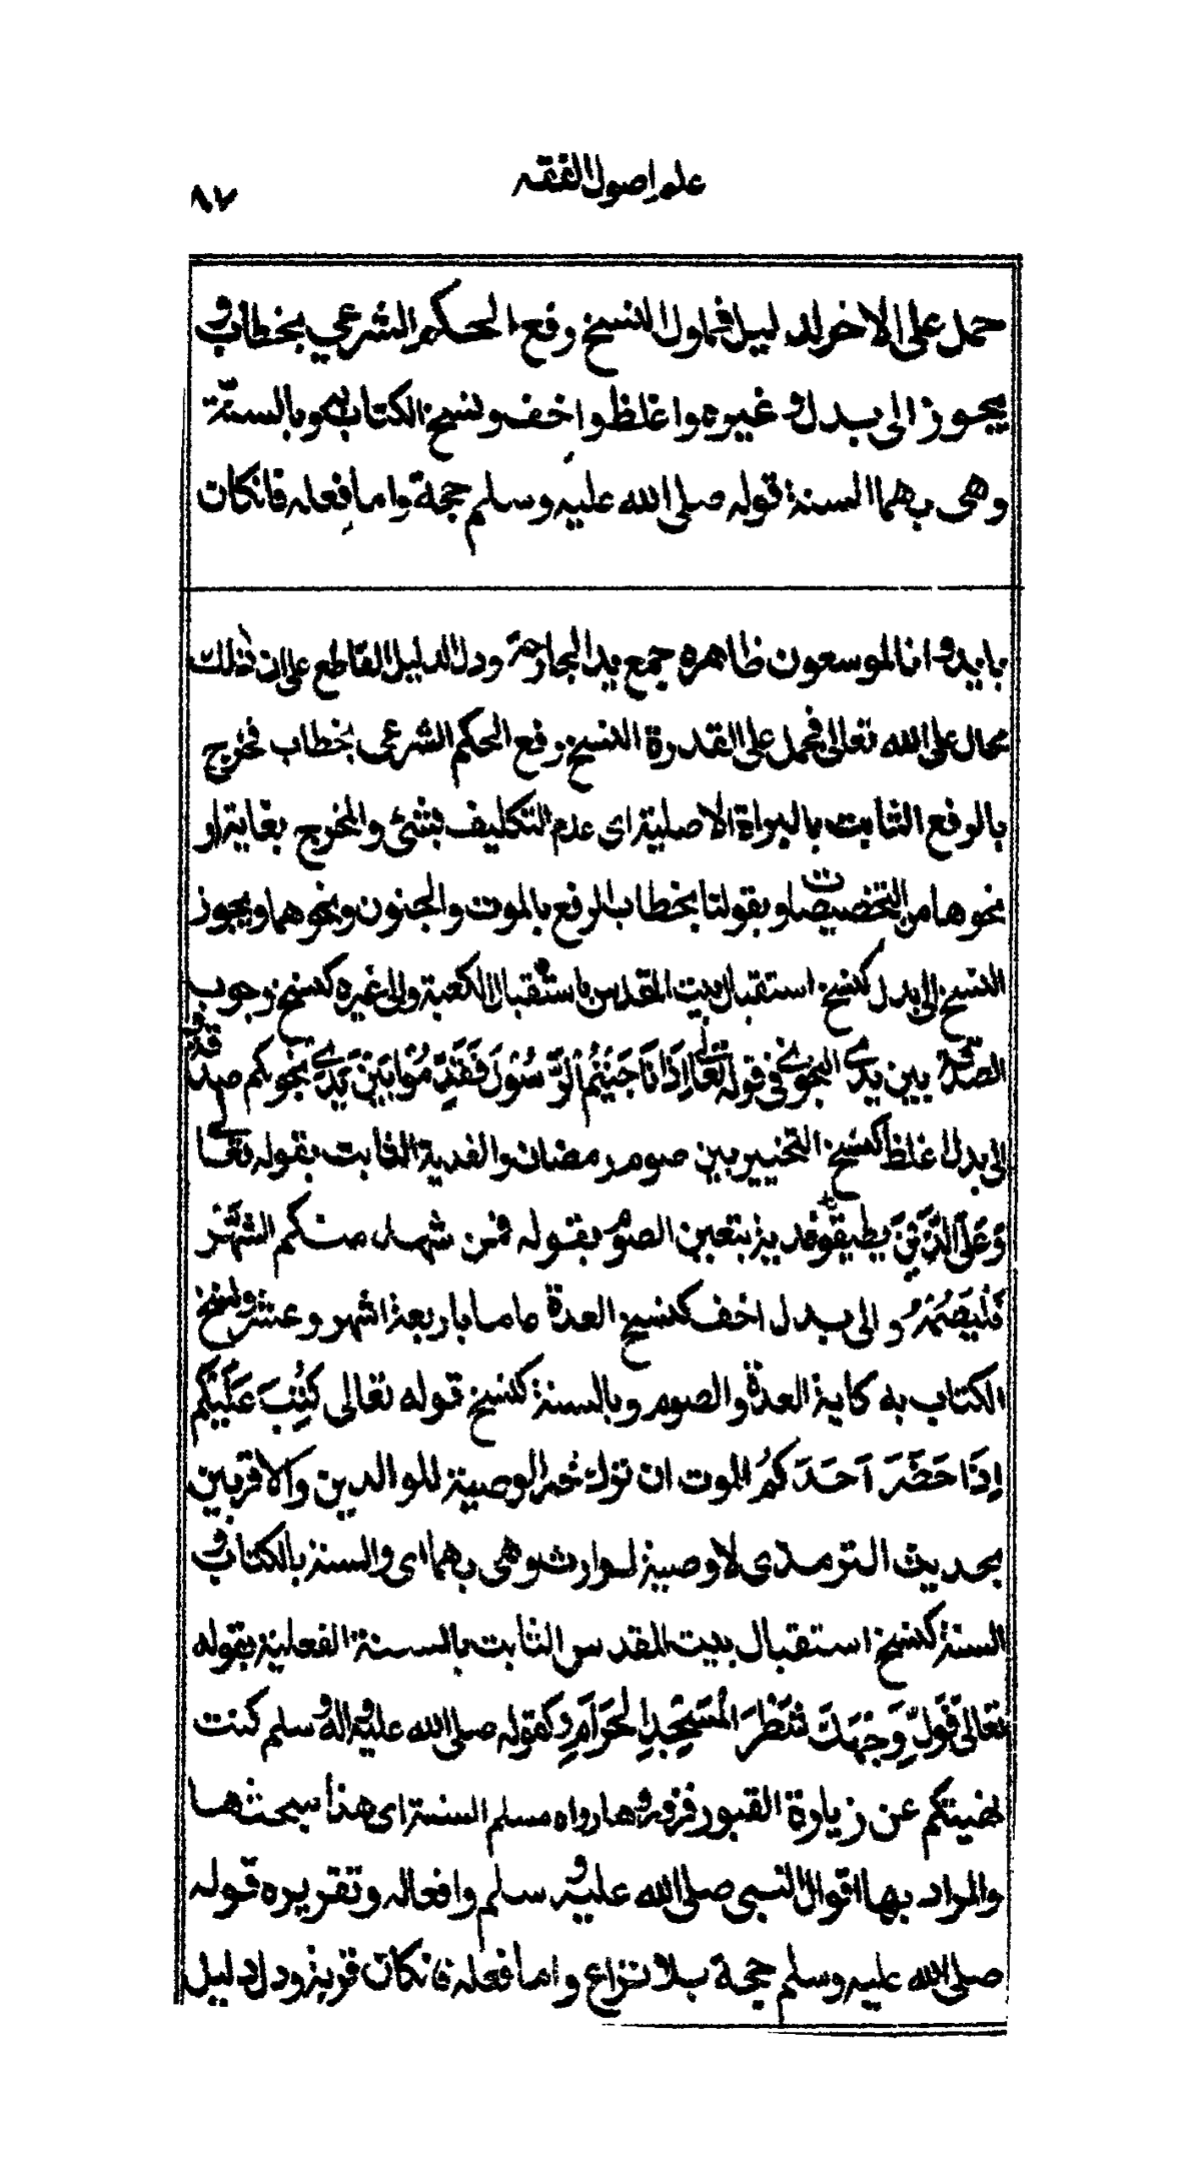 علم اصول الفقه
٨٧
حمل على الاخر لدليل فماول النسخ رفع الحكم الشرعي بخطاب و
يجوز الى بدل و غيره واغلظ واخف ونسخ الكتاب به وبالسنّة
وهى بهما السنة قوله صلى الله عليه وسلم حجة واما فعله فانكان
بايد وانا لموسعون ظاهره جمع يد الجارحة ودل الدليل القاطع على ان ذلك
محال على الله تعالى فحمل على القدرة النسخ رفع الحكم الشرعى بخطاب فخرج
بالرفع الثابت بالبراة الاصلية اى عدم التكليف بشئ والمخرج بغاية او
نحوها من التخصيصات او بقولنا بخطاب الرفع بالموت والجنون ونحوهما ويجوز
النسخ الى بدل كنسخ استقبال بيت المقدس باستقبال الكعبة والى غيره كنسخ وجوب
الصدقة بين يدى النجوى فى قوله تعالى اِذَا نَاجَيْتُمُ الرَّسُوْلَ فَقَدِّمُوْا بَيْنَ يَدَىْ نجوىكم صدقة و
الى بدل اغلظ كنسخ التخيير بين صوم رمضان والفدية الثابت بقوله تعالى
وَعَلَى الَّذِيْنَ يطيقونه فدية بتعين الصوم بقوله فمن شهد منكم الشَّهْرَ
فَلْيَصُمْهُ و الى بدل اخف كنسخ العدة عاما باربعة اشهر وعشر ونسخ
الكتاب به كاية العدة والصوم وبالسنة كنسخ قوله تعالى كُتِبَ عَلَيْكُم
اِذَا حَضَرَ اَحَدَكُمُ الموت ان ترك خيرا الوصية للوالدين والاقربين
بحديث الترمذى لا وصية لوارث وهى بهما اى والسنة بالكتاب و
السنة كنسخ استقبال بيت المقدس الثابت بالسنة الفعلية بقوله
تعالى فَوَلِّ وَجْهَكَ شَطْرَ الْمَسْجِدِ الْحَرَامِ وكقوله صلى الله عليه واله وسلم كنت
نهيتكم عن زيارة القبور فزوروها رواه مسلم السنة اى هذا مبحثها
والمراد بها اقوال النبى صلى الله عليه و سلم وافعاله وتقريره قوله
صلى الله عليه وسلم حجة بلا نزاع واما فعله فانكان قربة ودل دليل